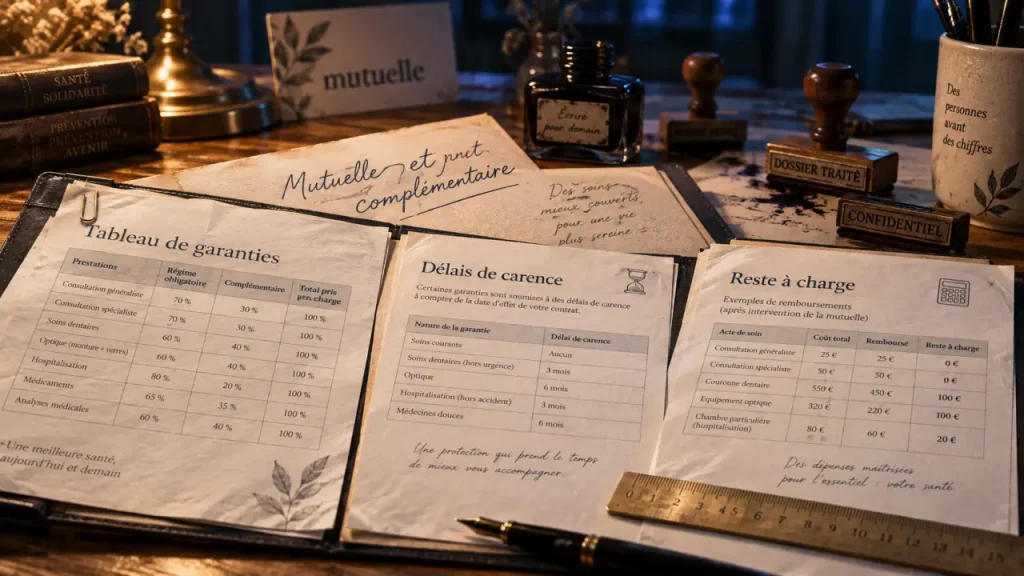 SANTÉ
SOLIDARITÉ
PRÉVENTION
AVENIR
mutuelle
Écrire
pour demain
DOSSIER TRAITÉ
CONFIDENTIEL
Des
personnes
avant
des chiffres
Mutuelle et
complémentaire
Des soins
mieux couverts,
pour une vie
plus sereine
Tableau de garanties
Prestations Régime obligatoire Complémentaire Total pris par. charge
Consultation généraliste 70 % 30 % 100 %
Consultation spécialiste 70 % 30 % 100 %
Soins dentaires 60 % 40 % 100 %
Optique (monture + verres) 60 % 40 % 100 %
Hospitalisation 80 % 20 % 100 %
Médicaments 65 % 35 % 100 %
Analyses médicales 60 % 40 % 100 %
Une meilleure santé,
aujourd'hui et demain
Délais de carence
Certaines garanties sont soumises à des délais de carence
à compter de la date d'effet de votre contrat.
Nature de la garantie Délai de carence
Soins courants Aucun
Soins dentaires (hors urgence) 3 mois
Optique 6 mois
Hospitalisation (hors accident) 3 mois
Médecines douces 6 mois
Une protection qui prend le temps
de mieux vous accompagner.
Reste à charge
Exemples de remboursements
(après intervention de la mutuelle)
Acte de soin Coût total Remboursé Reste à charge
Consultation généraliste 25 € 25 € 0 €
Consultation spécialiste 50 € 50 € 0 €
Couronne dentaire 550 € 450 € 100 €
Equipement optique 320 € 220 € 100 €
Chambre particulière (hospitalisation) 80 € 60 € 20 €
Des dépenses maîtrisées
pour l'essentiel : votre santé.
0 1 2 3 4 5 6 7 8 9 10 11 12 13 14 15